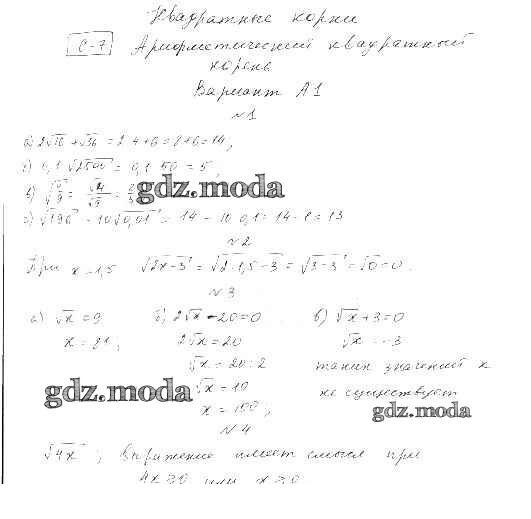 Квадратные корни
С-7 Арифметический квадратный
корень
Вариант А1
№1
а) 2√16 + √36 = 2·4+6 = 8+6 = 14;
б) 0,1·√2500 = 0,1·50 = 5;
в) √4/9 = √4/√9 = 2/3
gdz.moda
г) √196 - 10√0,01 = 14 - 10·0,1 = 14-1 = 13
№2
При x = 1,5 √2x-3 = √2·1,5-3 = √3-3 = √0 = 0.
№3
а) √x = 9 б) 2√x - 20 = 0 в) √x + 3 = 0
x = 81; 2√x = 20 √x = -3
√x = 20:2 таких значений x
gdz.moda √x = 10 не существует
x = 100; gdz.moda
№4
√4x; Выражение имеет смысл при
4x ≥ 0 или x ≥ 0.